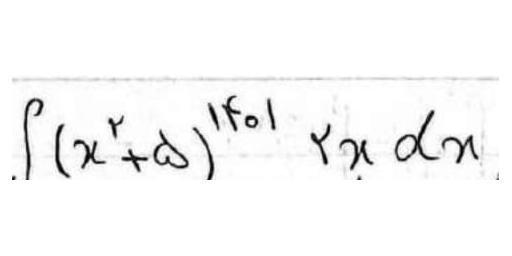 ∫(x²+۵)^۱۴۰۱ ۲x dx